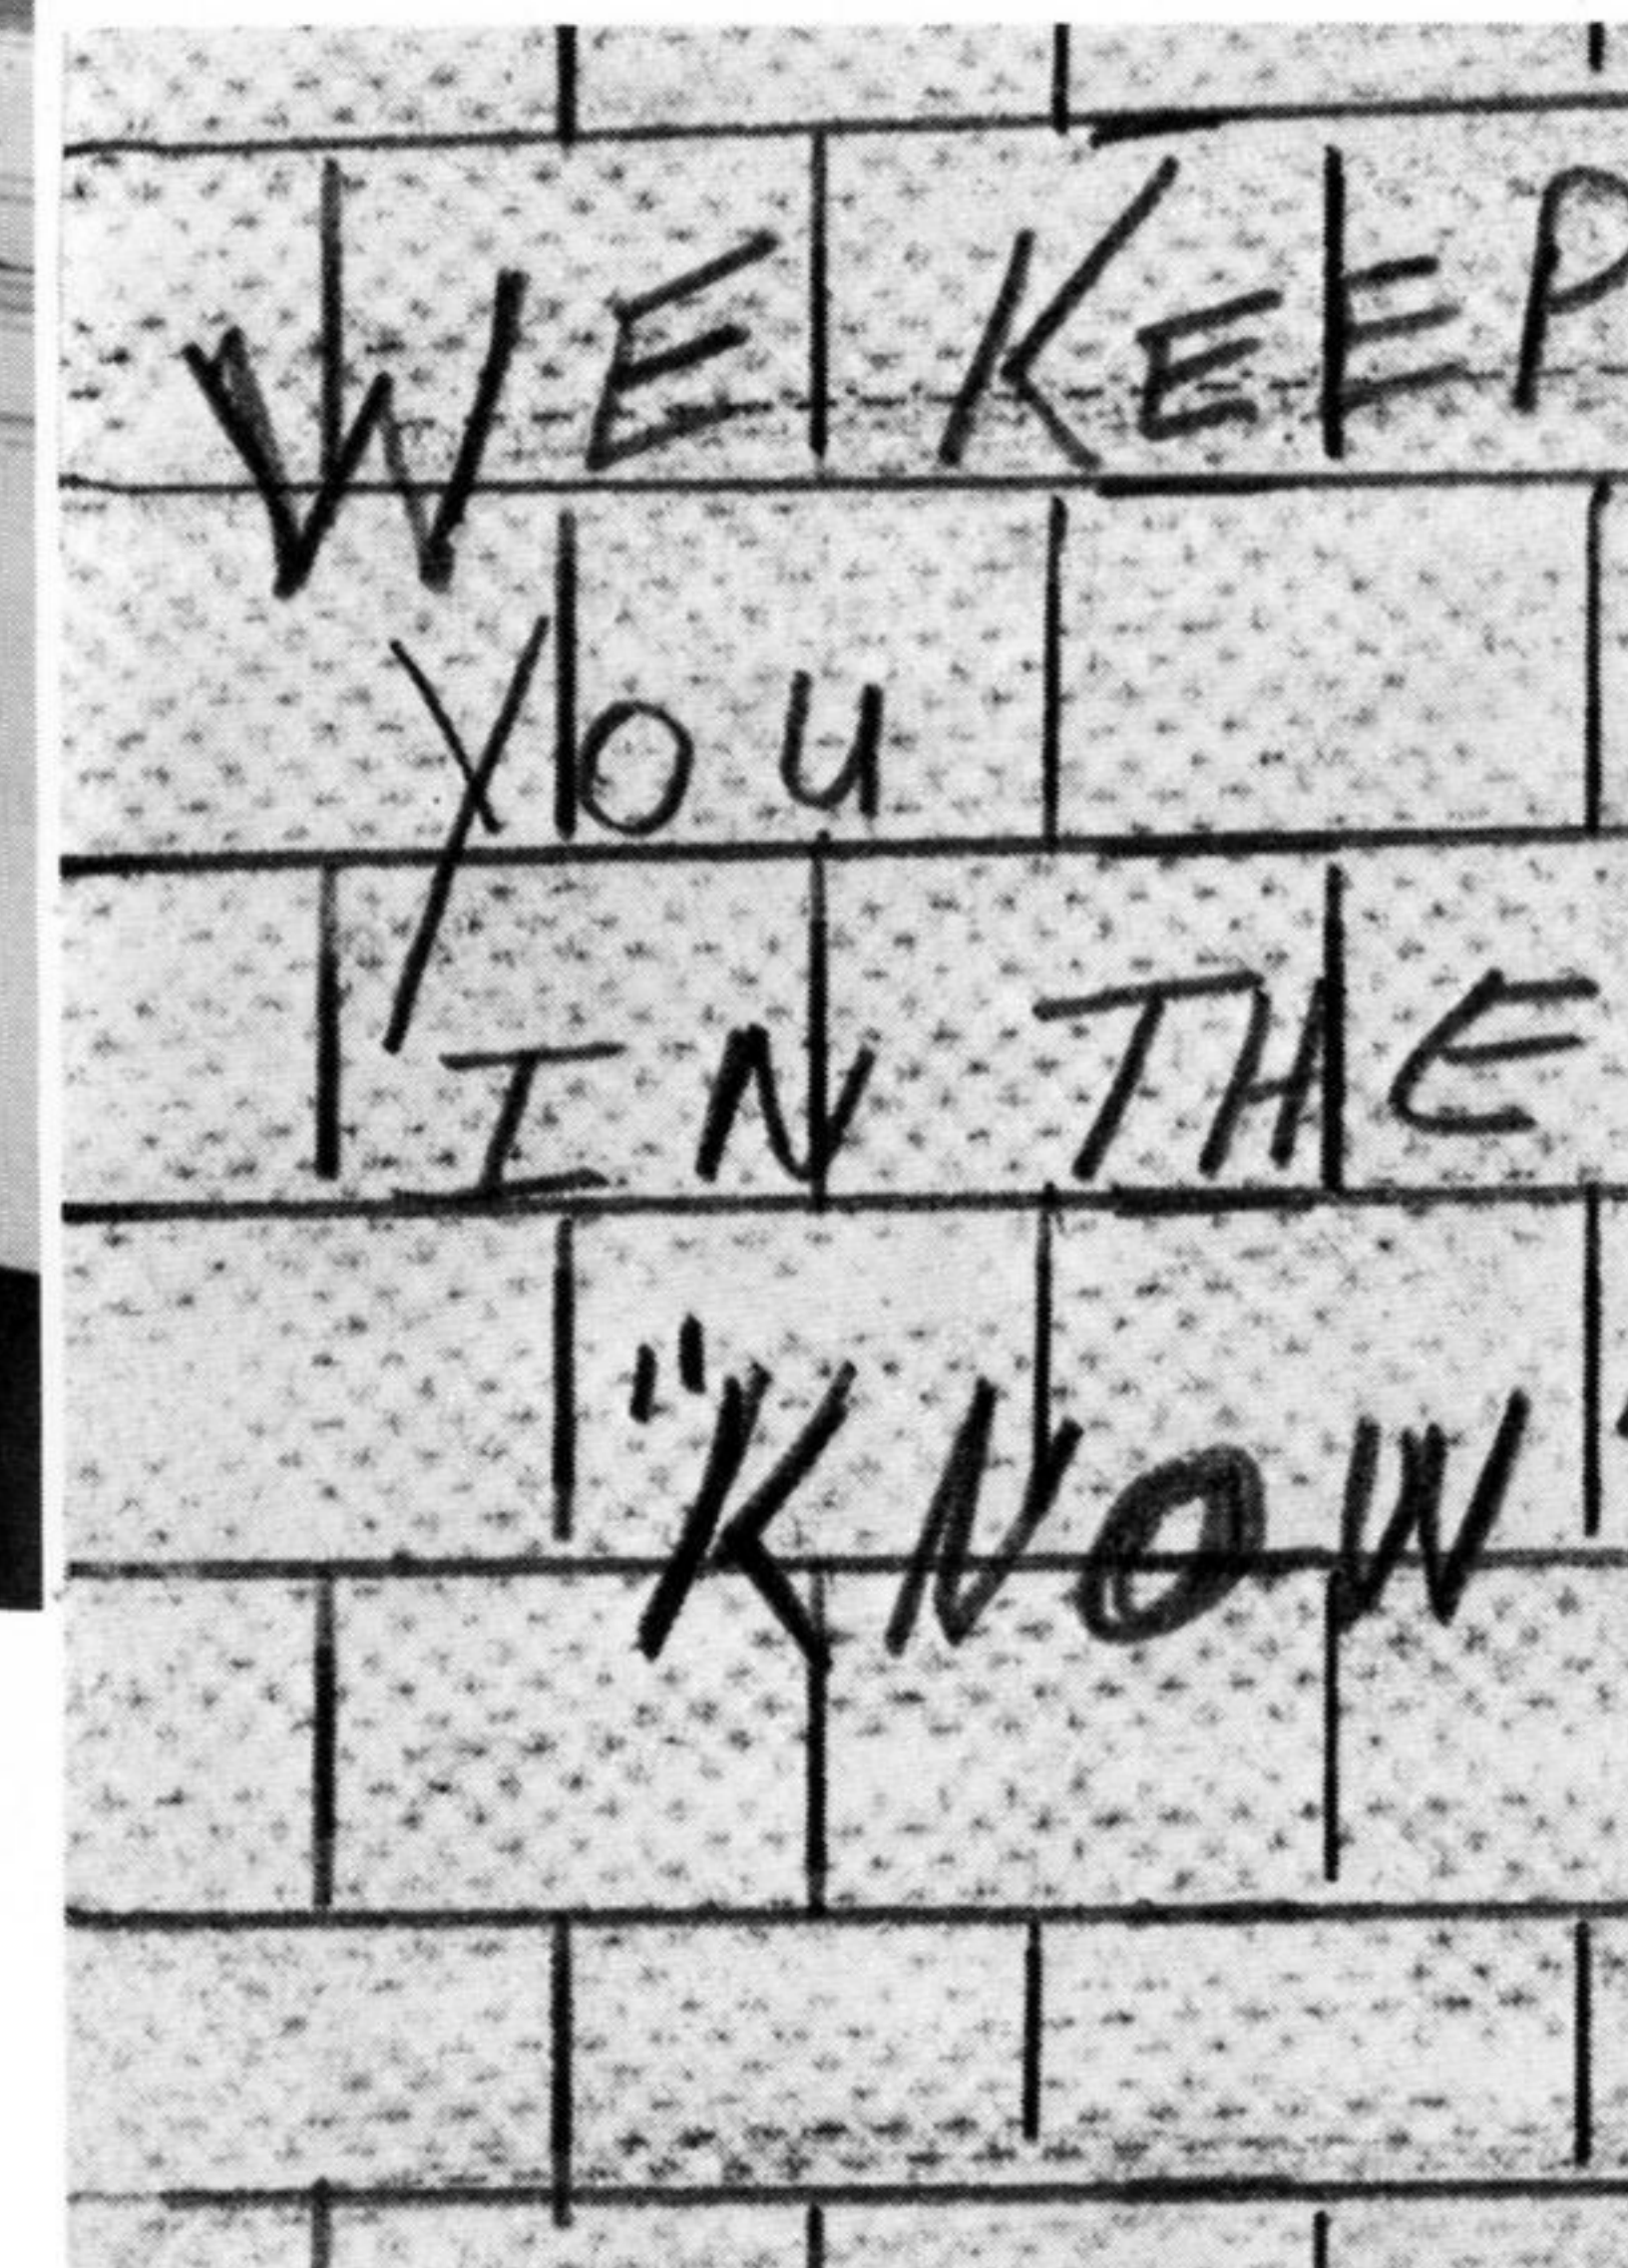 WE KEEP
YOU
IN THE
"KNOW"